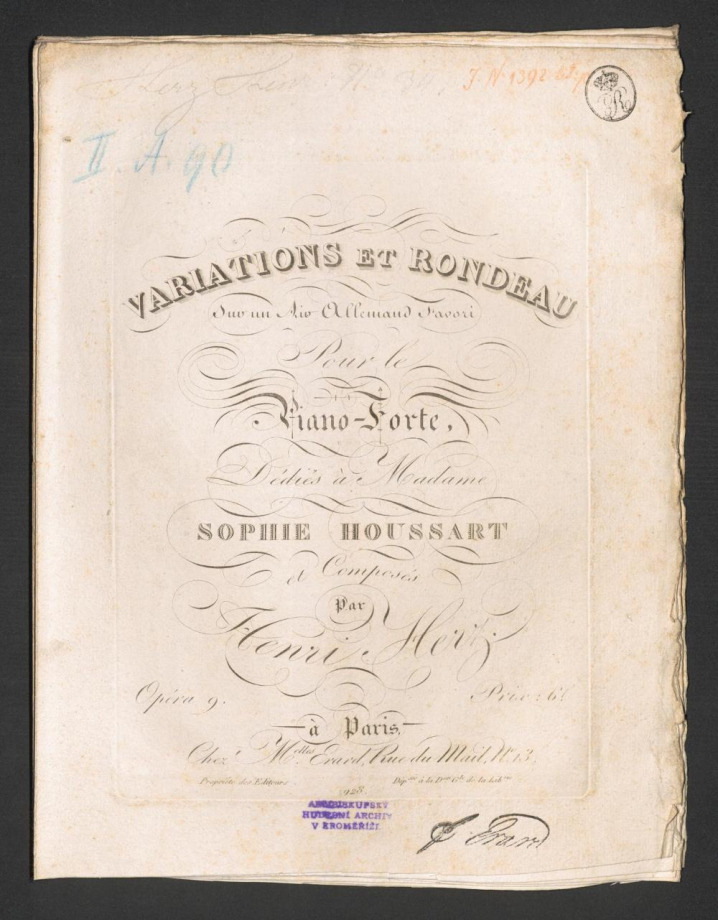 J. N 1392
II. A. 90
VARIATIONS ET RONDEAU
Sur un Air Allemand Favori
Pour le
Piano-Forte,
Dédiés à Madame
SOPHIE HOUSSART
et Composés
Par
Henri Herz.
Opéra 9.
Prix: 6f
à Paris,
Chez Melles Erard, Rue du Mail, No. 13.
Propriété des Editeurs.
Dép. à la Don Gle. de la Lib.
928.
ARCIBISKUPSKÝ
HUDEBNÍ ARCHIV
V KROMĚŘÍŽI
Erard